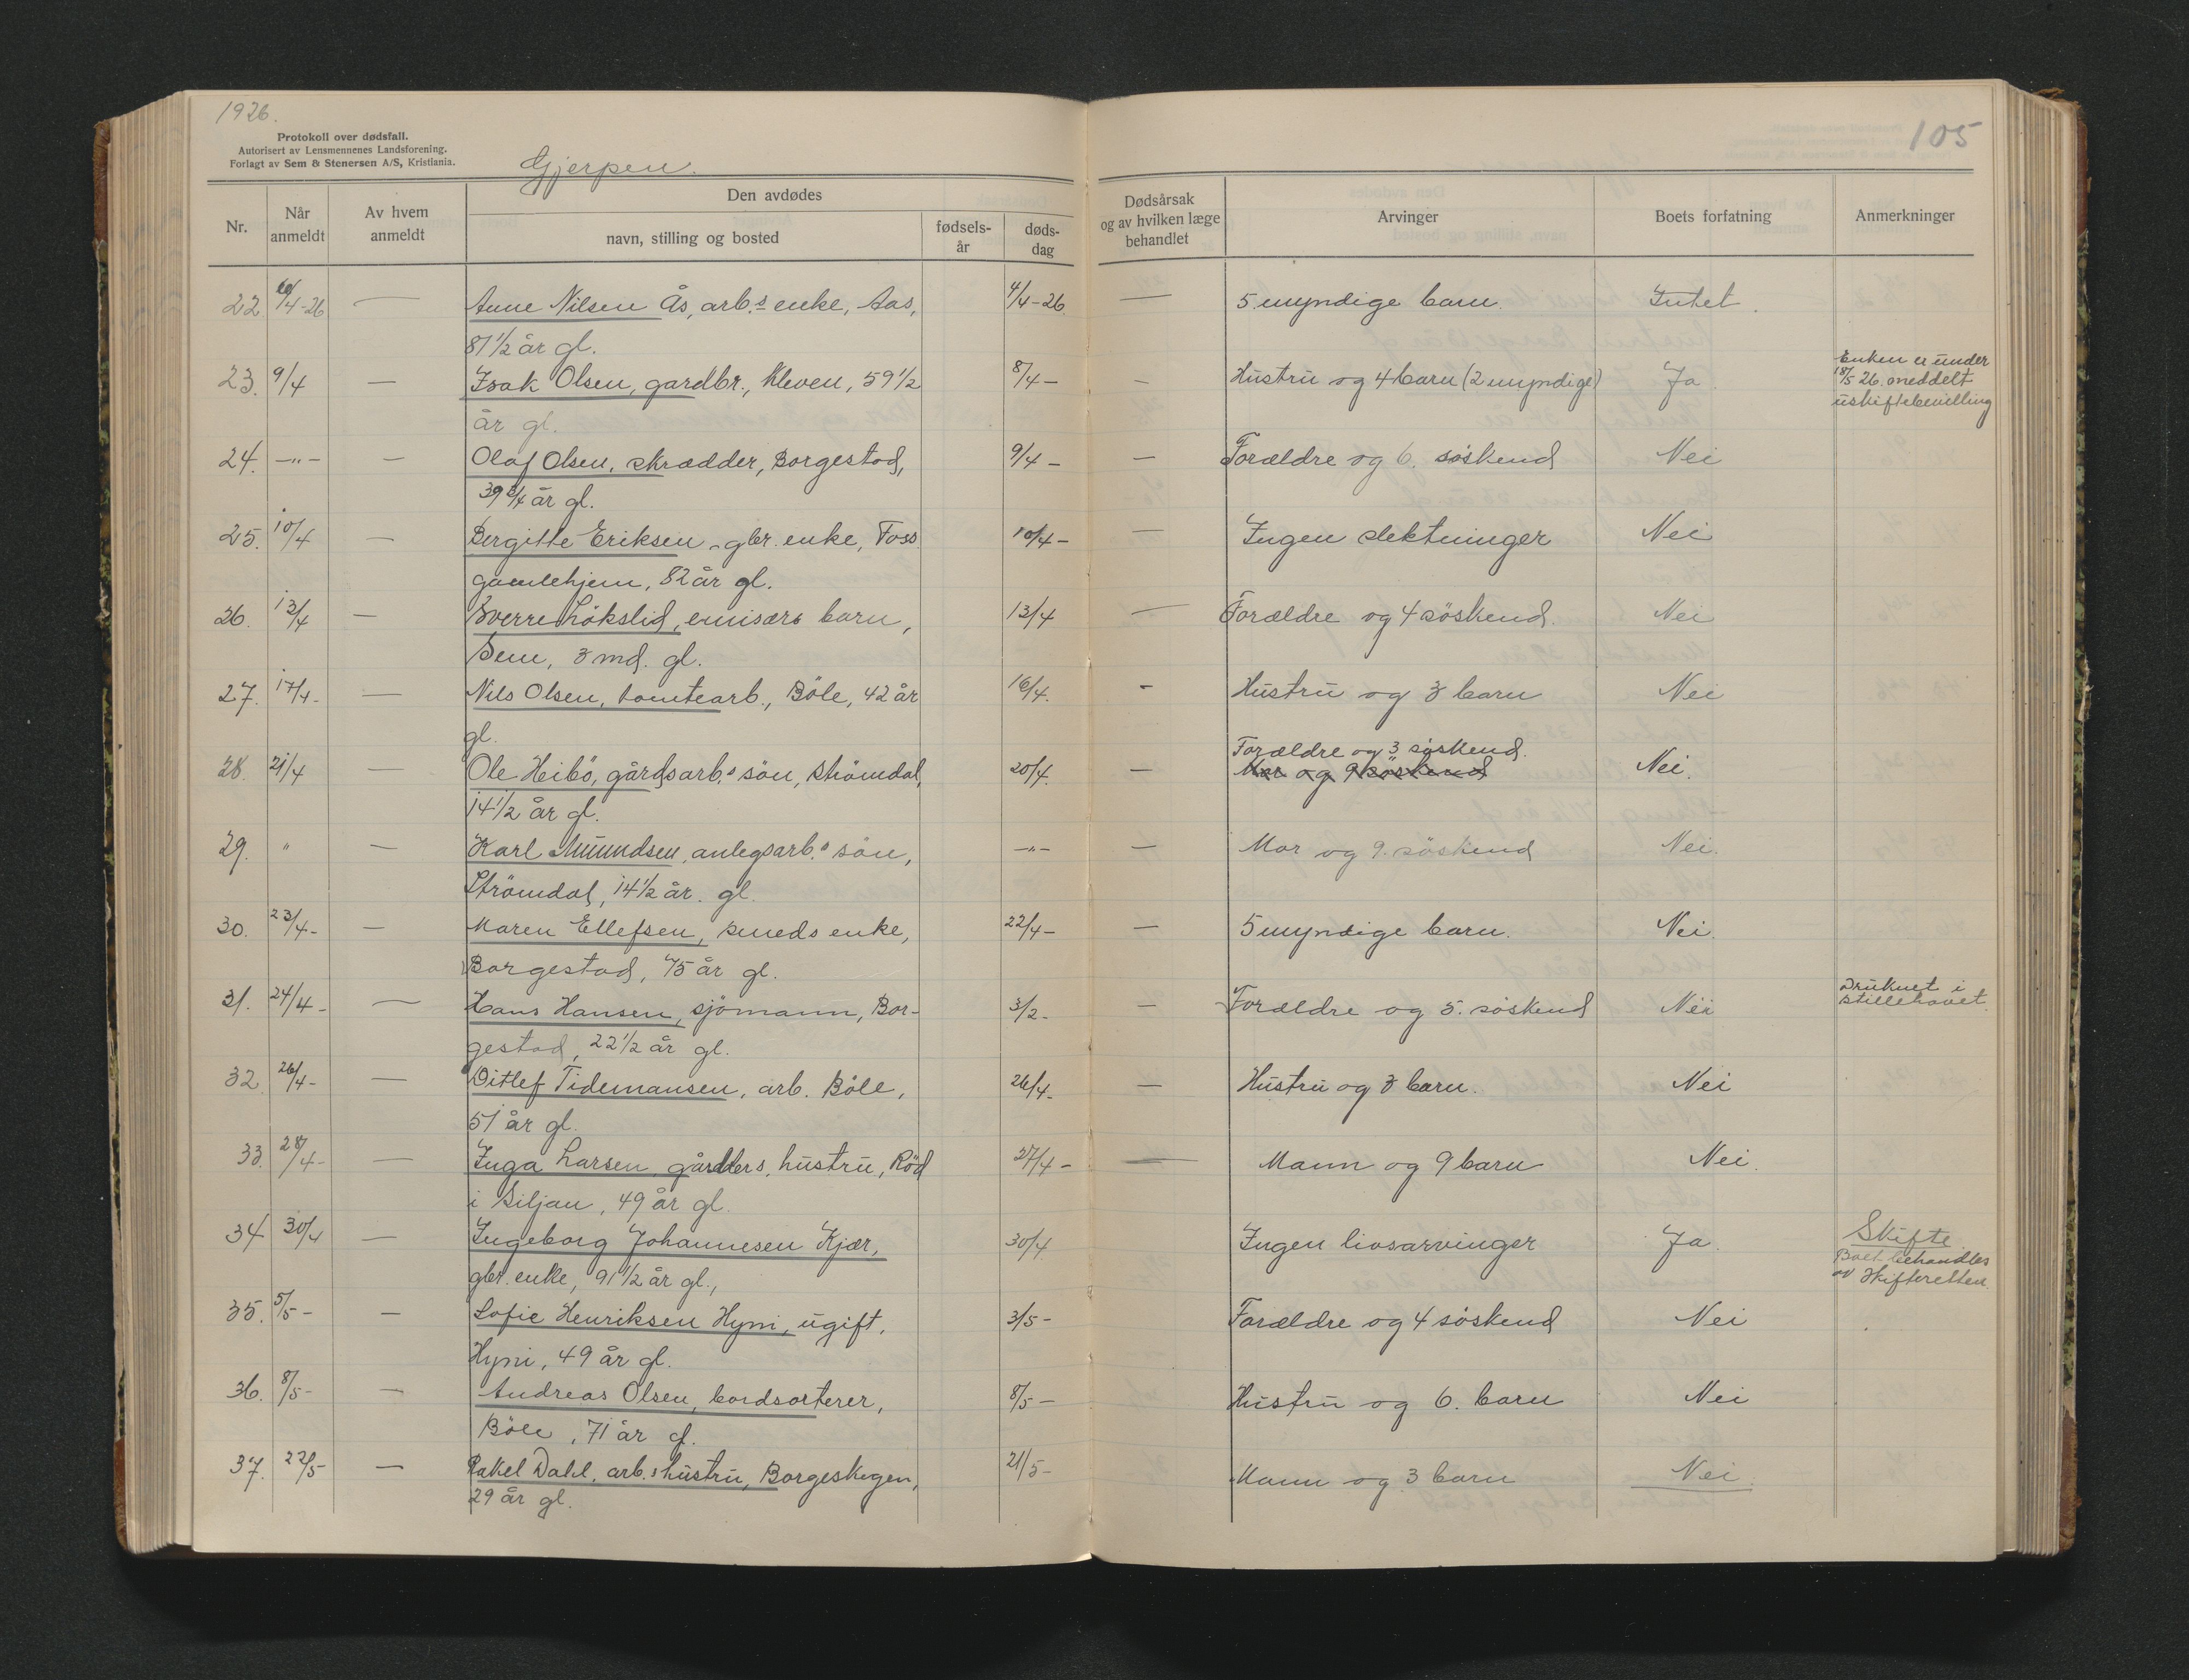 1926.
Protokoll over dødsfall.
Autorisert av Lensmennenes Landsforening.
Forlagt av Sem & Stenersen A/S, Kristiania.
Gjerpen.
105
Nr.
Når anmeldt
Av hvem anmeldt
Den avdødes
navn, stilling og bosted
fødsels-år
døds-dag
Dødsårsak og av hvilken læge behandlet
Arvinger
Boets forfatning
Anmerkninger
22 6/4-26 — Anne Nilsen Ås, arb.s enke, Aas, 4/4-26. — 5 myndige barn. Intet.
87 1/2 år gl.
23. 9/4 — Isak Olsen, gardbr., Kleven, 59 1/2 8/4 — — Hustru og 4 barn (2 myndige) Ja. Enken er under
18/5 26. meddelt
uskiftebevilling
år gl.
24. —"— — Olaf Olsen, skrædder, Borgestad, 9/4 — — Forældre og 6. søskend Nei
39 3/4 år gl.
25. 10/4 — Bergitte Eriksen, gbr. enke, Foss 10/4 — — Ingen slektninger Nei
gamlehjem, 82 år gl.
26. 13/4 — Sverre Løkslid, emisærs barn, 13/4 — Forældre og 4 søskend. Nei
Sem, 3 md. gl.
27. 17/4- — Nils Olsen, tomtearb., Bøle, 42 år 16/4. - Hustru og 3 barn Nei
gl.
Forældre og 3 søskend.
28. 21/4 — Ole Heibø, gårdsarb.s søn, Strømdal, 20/4. — Mor og 9 søskend Nei.
14 1/2 år gl.
29. " — Karl Amundsen, anlegsarb.s søn, —"— — Mor og 9. søskend Nei.
Strømdal, 14 1/2 år. gl.
30. 23/4- — Maren Ellefsen, smeds enke, 22/4 — — 5 myndige barn. Nei.
Borgestad, 75 år gl.
31. 24/4- — Hans Hansen, sjømann, Bor- 3/2- — Forældre og 5. søskend Nei Druknet i
Stillehavet.
gestad, 22 1/2 år gl.
32. 26/4- — Ditlef Tidemansen, arb. Bøle, 26/4- — Hustru og 3 barn. Nei
51 år gl.
33. 28/4- — Inga Larsen, gårdbrs. hustru, Rød 27/4 — — Mann og 9 barn Nei.
i Siljan, 49 år gl.
34 30/4 — Ingeborg Johannesen Kjær, 30/4 Ingen livsarvinger Ja. Skifte
Boet behandles
av Skifteretten.
gbr. enke, 91 1/2 år gl.,
35. 5/5- — Sofie Henriksen Hyni, ugift, 3/5- Forældre og 4 søskend Nei
Hyni, 49 år gl.
36. 8/5- — Andreas Olsen, bordsorterer, 8/5 — Hustru og 6. barn Nei
Bøle, 71 år gl.
37. 22/5- — Rakel Dahl, arb.s hustru, Borgeskogen, 21/5- Mann og 3 barn Nei.
29 år gl.